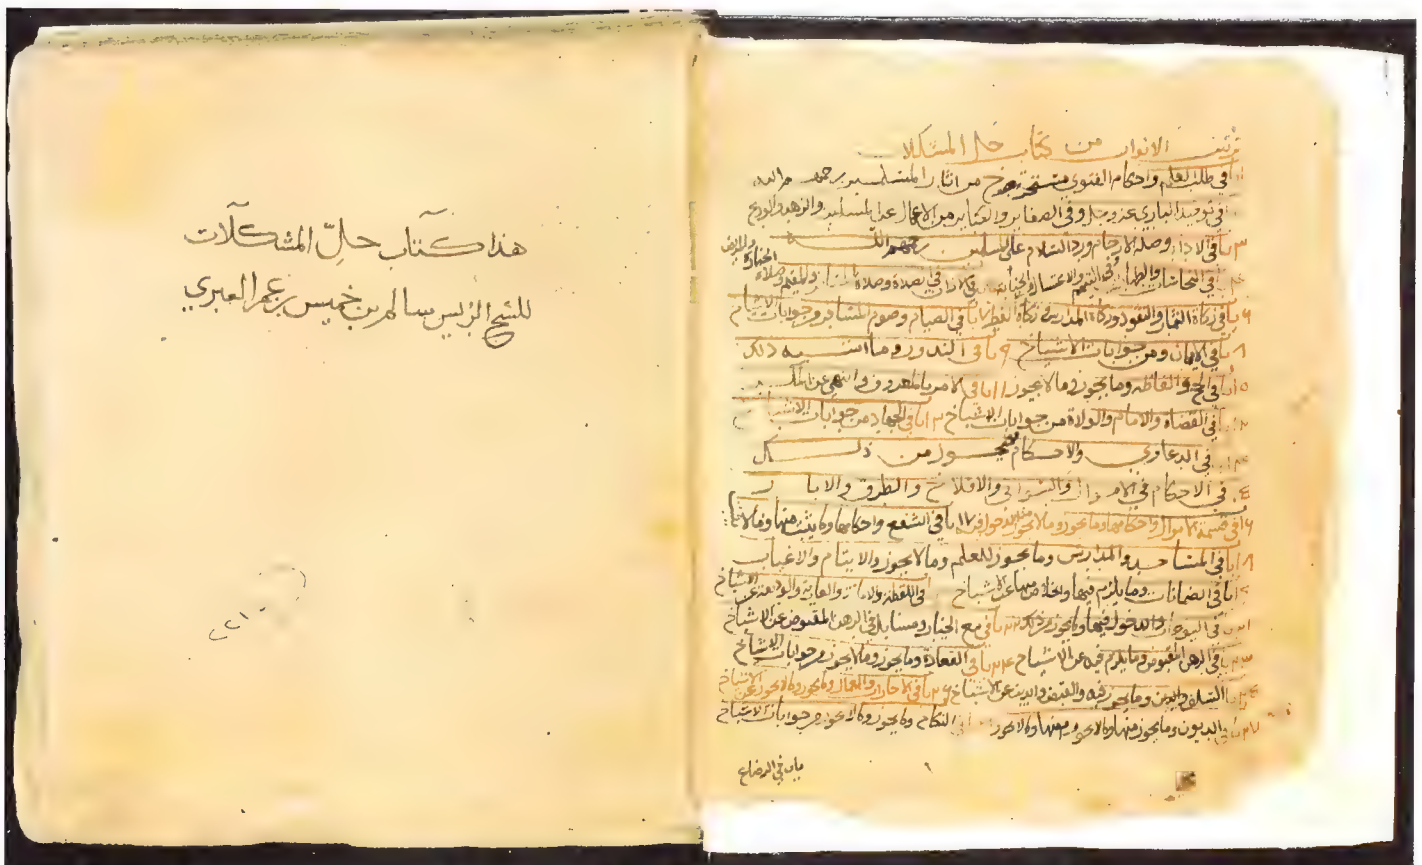 ترتيب الابواب من كتاب حل المشكلات
١ باب في طلب العلم واحكام الفتوى من اثار المسلمين رحمهم الله
في توحيد الباري عز وجل وفي الصغاير والكباير من الاعمال عند المسلمين والزهد والورع
٣ باب في الاداب وصلة الارحام ورد السلام على المسلمين رحمهم الله
في النجاسات والطهارات وفي التيمم والاغتسال من الجنابة في الاذان في الصلاة وصلاة المسافر والمقيم وصلاة الجنازة والمريض
٦ باب في زكاة الثمار والنقود وزكاة المدارس وزكاة الفطر ٧ باب في الصيام وصوم المسافر وجوابات الاشياخ
٨ باب في الايمان ومن جوابات الاشياخ ٩ باب في النذور وما اشبه ذلك
١٥ باب في الحج والفاظه وما يجوز وما لا يجوز ١١ باب في الامر بالمعروف والنهي عن المنكر
١٢ باب في القضاة والامام والولاة من جوابات الاشياخ ١٣ باب في الجهاد من جوابات الاشياخ
في الدعاوي والاحكام من ذلك
في الاحكام في الاموال والسواقي والافلاج والطرق والابار
١٦ باب في قسمة الاموال واحكامها وما يجوز وما لا يجوز ١٧ باب في الشفع واحكامها وما يثبت منها وما لا
١٨ باب في المساجد والمدارس وما يجوز للمعلم وما لا يجوز والايتام والاغياب
باب في الضمانات وما يلزم فيها والخلاص منها عن الاشياخ في اللقطة والامانة والعارية والوديعة عن الاشياخ
في البيوعات والدخول فيها وما يجوز من ذلك باب في بيع الخيار ومسايل في الرهن المقبوض عن الاشياخ
٢٣ باب في الرهن المقبوض وما يلزم فيه عن الاشياخ ٢٤ باب في القعادة وما يجوز وما لا يجوز من جوابات الاشياخ
باب السلف والدين وما يجوز فيه والقبض والدين عن الاشياخ ٢٦ باب في الاجارات والعمال وما يجوز وما لا يجوز عن الاشياخ
٢٧ باب في الديون وما يجوز منها وما لا يجوز في النكاح وما يجوز وما لا يجوز من جوابات الاشياخ
باب في الرضاع
١
هذا كتاب حل المشكلات
للشيخ الرئيس سالم بن خميس بن عمر العبري
٢٢١٠